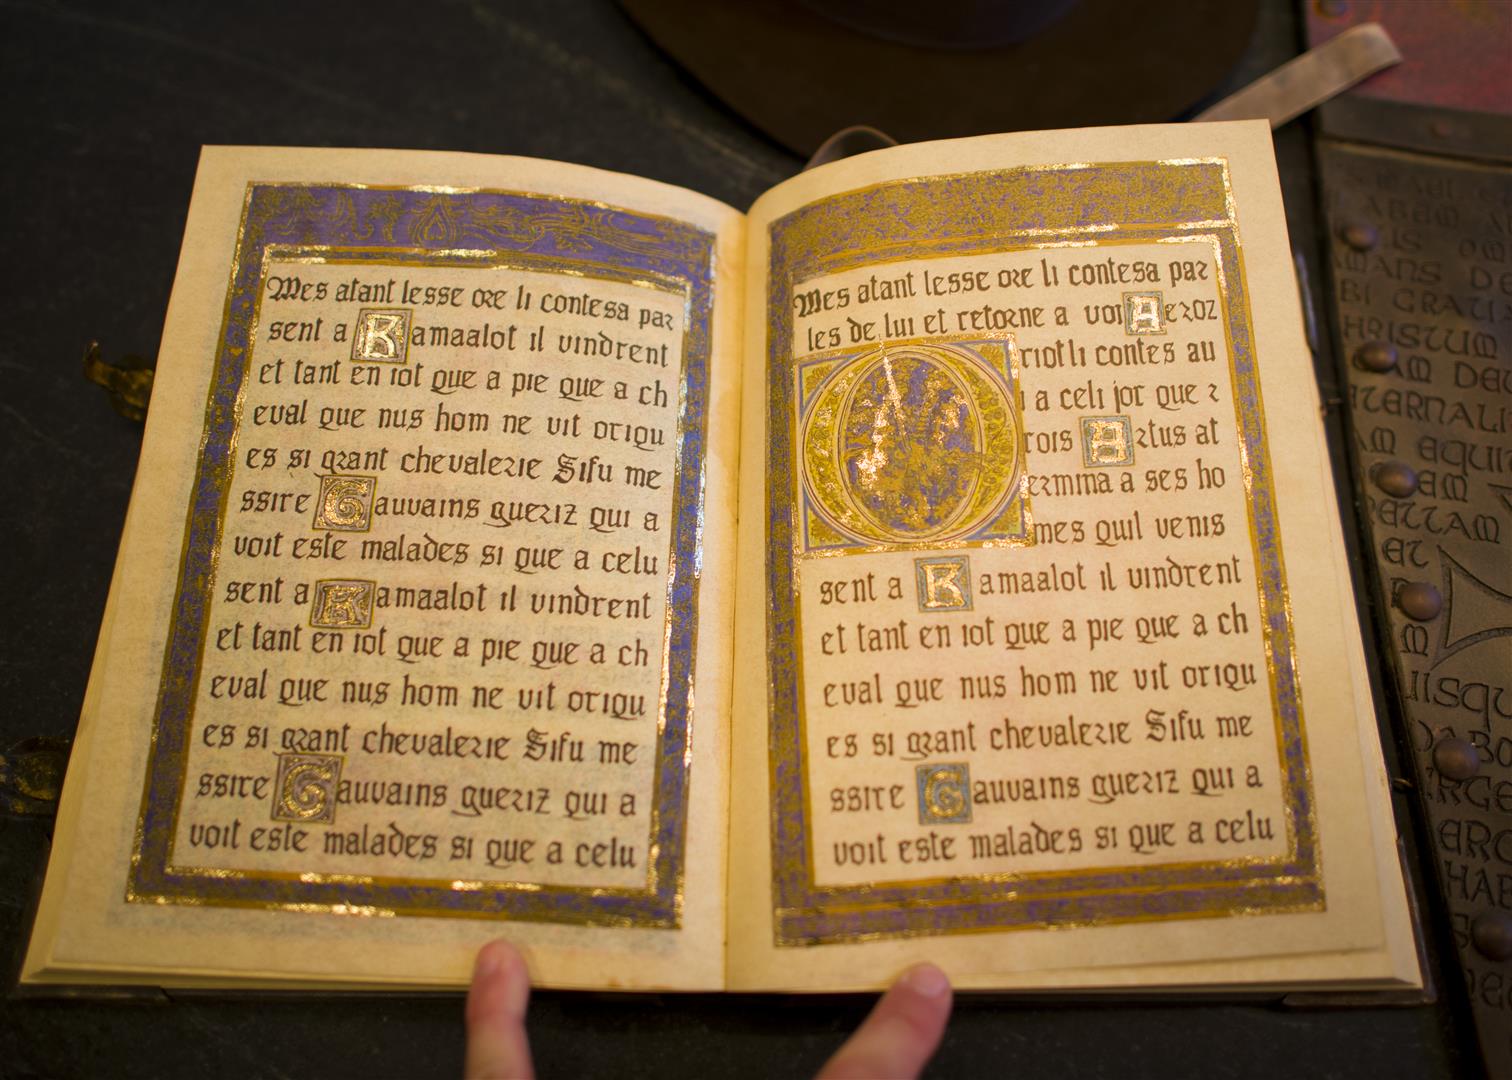 Mes atant lesse ore li contesa par
sent a Kamaalot il vindrent
et tant en iot que a pie que a ch
eval que nus hom ne vit oriqu
es si grant chevalerie Sifu me
ssire Gauvains gueriz qui a
voit este malades si que a celu
sent a Kamaalot il vindrent
et tant en iot que a pie que a ch
eval que nus hom ne vit oriqu
es si grant chevalerie Sifu me
ssire Gauvains gueriz qui a
voit este malades si que a celu
Mes atant lesse ore li contesa par
les de lui et retorne a voi Aeroz
riotli contes au
a celi jor que
rois Artus at
ermina a ses ho
mes quil venis
sent a Kamaalot il vindrent
et tant en iot que a pie que a ch
eval que nus hom ne vit oriqu
es si grant chevalerie Sifu me
ssire Gauvains gueriz qui a
voit este malades si que a celu
HRISTUM
ET